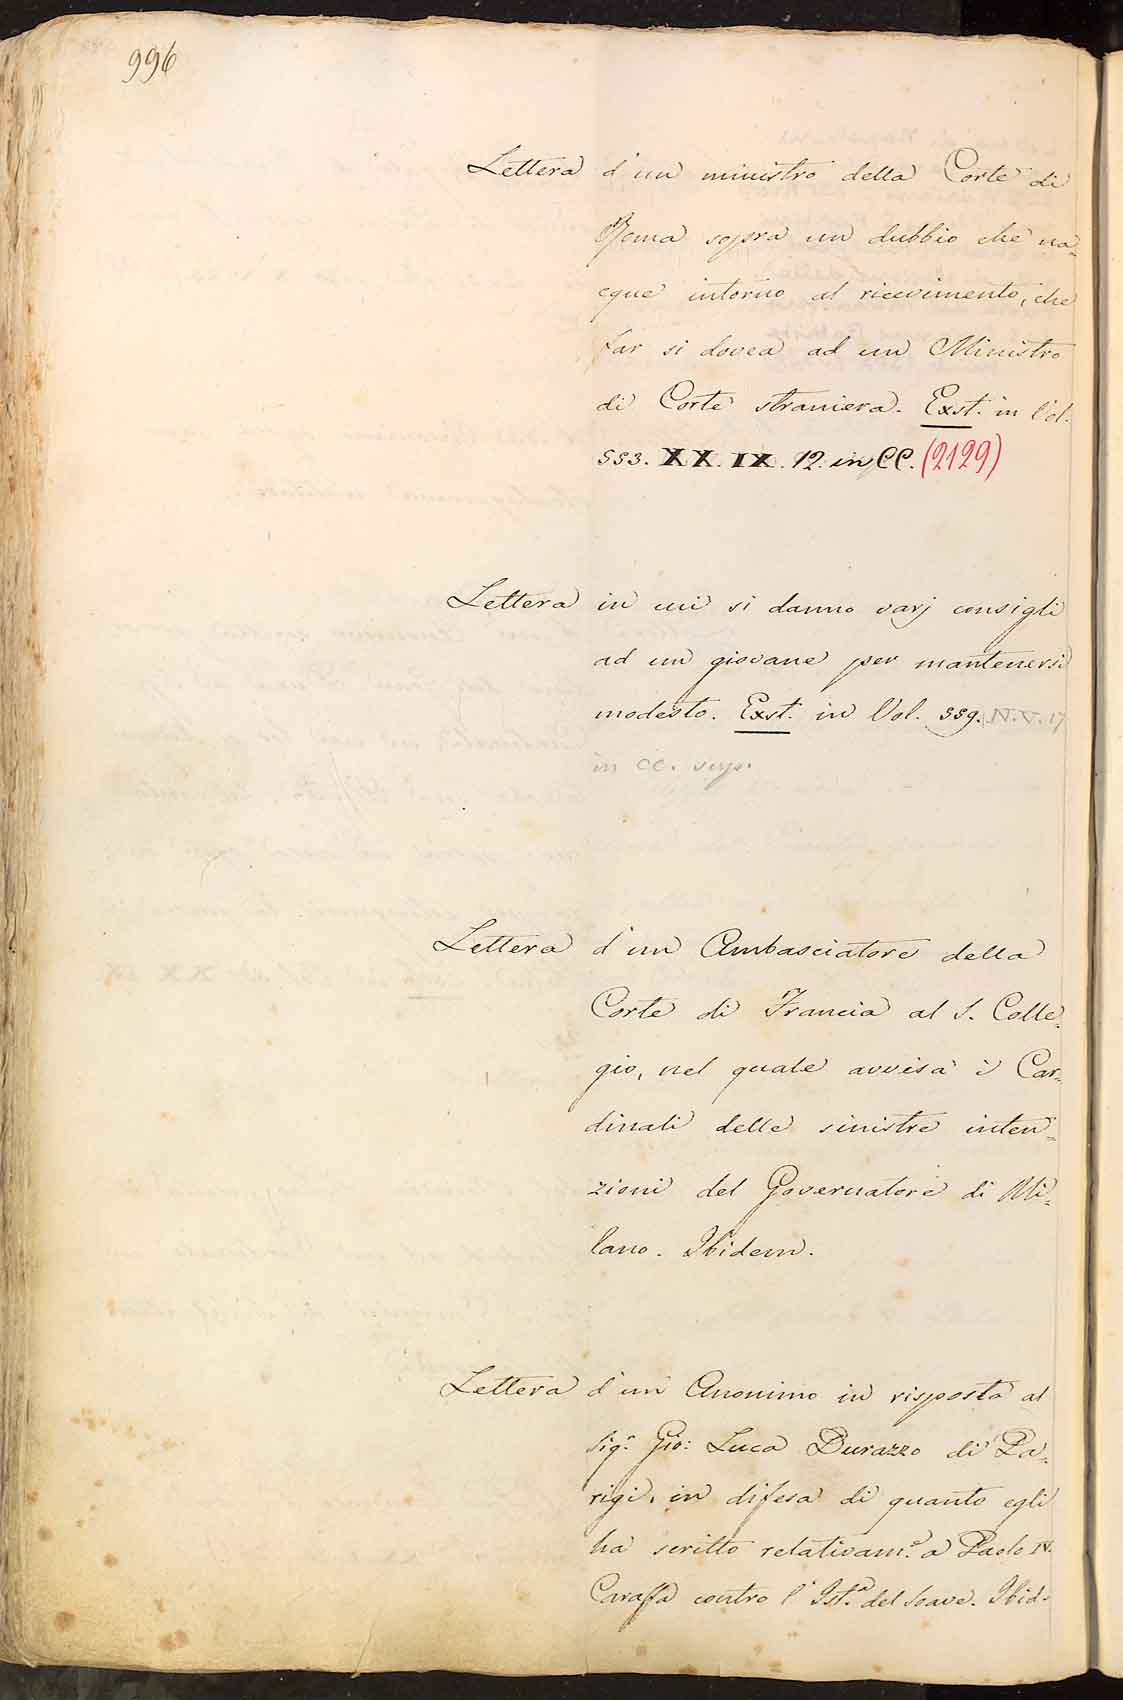 996
Lettera d'un ministro della Corte di
Roma sopra un dubbio che na=
cque intorno al ricevimento, che
far si dovea ad un Ministro
di Corte straniera. Exst. in Vol.
553. XX. IX. 12. in CC. (2129)
Lettera in cui si danno varj consigli
ad un giovane per mantenersi
modesto. Exst. in Vol. 559. IV. V. 17
in CC. seqs.
Lettera d'un Ambasciatore della
Corte di Francia al S. Colle=
gio, nel quale avvisa i Car=
dinali delle sinistre inten=
zioni del Governatore di Mi=
lano. Ibidem.
Lettera d'un Anonimo in risposta al
Sig.r Gio: Luca Durazzo di Pa=
rigi, in difesa di quanto egli
ha scritto relativam.e a Paolo IV.
Caraffa contro l'Ist.a del Soave. Ibid.